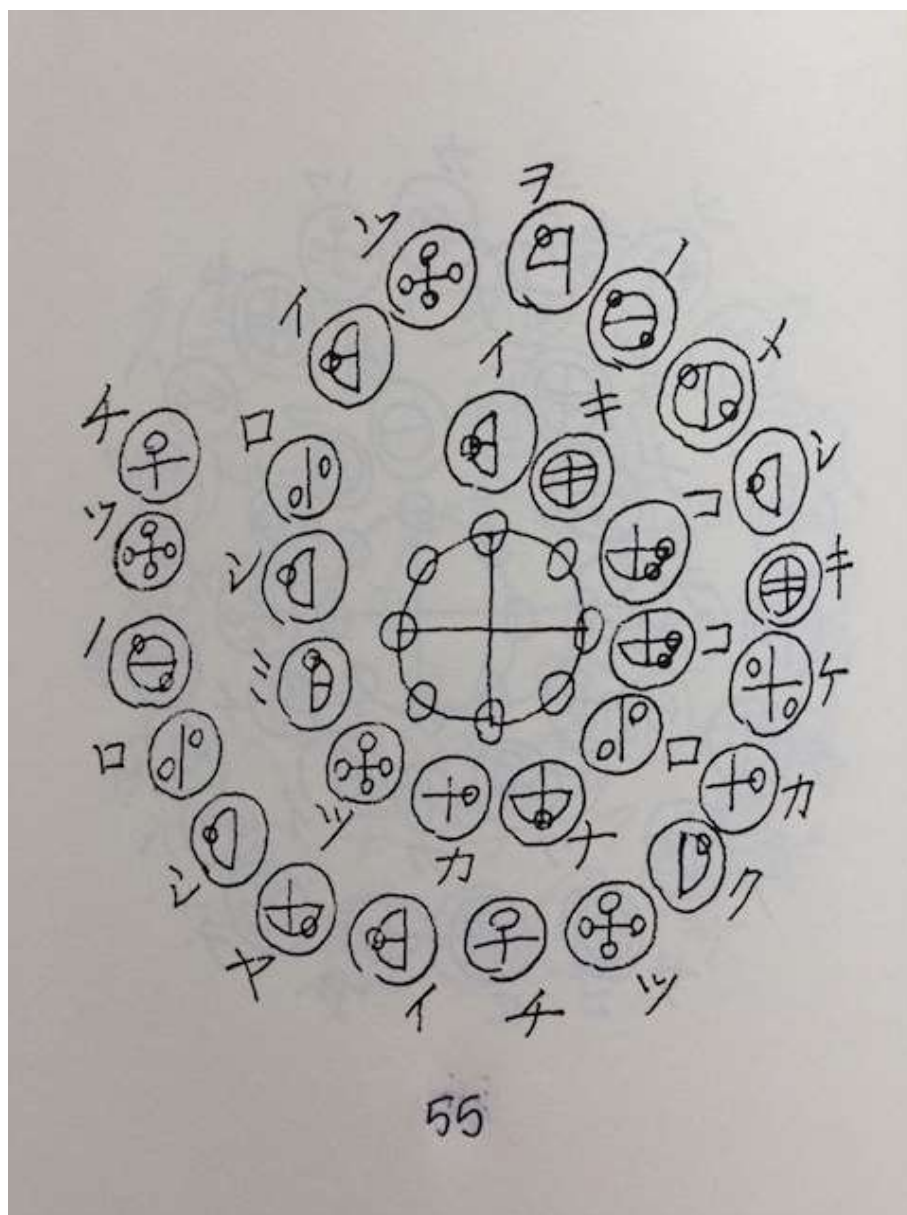 イキココロナカツミシロイツヲノメシキケカクツチイヤシロノツチ
55